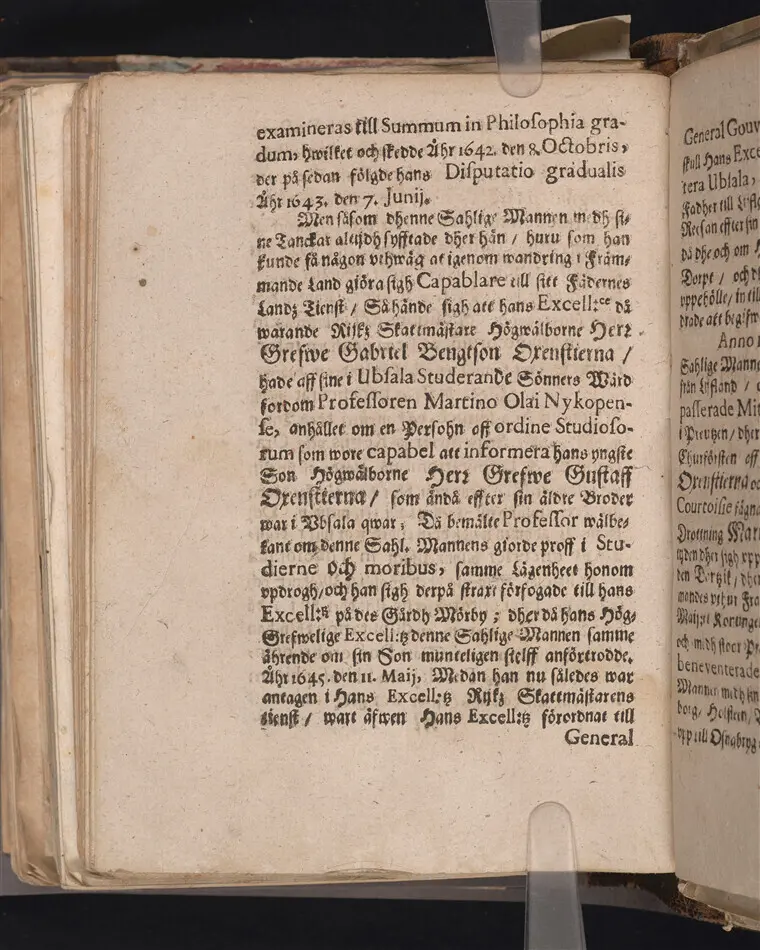 examineras till Summum in Philosophia gra-
dum, hwilket och skedde Åhr 1642. den 8. Octobris,
der på sedan fölgde hans Disputatio gradualis
Åhr 1643. den 7. Junij.
Men såsom dhenne Sahlige Mannen medh si-
ne Tanckar altijdh syfftade dher hän / huru som han
kunde få någon uthwäg at igenom wandring i Främ-
mande Land giöra sigh Capablare till sitt Fädernes
Landz Tienst / Så hände sigh att hans Excell:ce då
warande Rijkz Skattmästare Högwälborne Herr
Grefwe Gabriel Bengtson Oxenstierna /
hade aff sine i Ubsala Studerande Sönners Wård
fordom Professoren Martino Olai Nykopen-
se, anhållet om en Persohn aff ordine Studioso-
rum som wore capabel att informera hans yngste
Son Högwälborne Herr Grefwe Gustaff
Oxenstierna / som ändå effter sin äldre Broder
war i Ubsala qwar; Då bemälte Professor wälbe-
kant om denne Sahl. Mannens giorde proff i Stu-
dierne och moribus, samme Lägenheet honom
updrogh / och han sigh derpå straxt förfogade till hans
Excell:tz på des Gårdh Mörby; dher då hans Hög-
Grefwelige Excell:tz denne Sahlige Mannen samme
ährende om sin Son munteligen sielff anförtrodde.
Åhr 1645. den 11. Maij, Medan han nu således war
antagen i Hans Excell:tz Rijkz Skattmästarens
tienst / wart äfwen Hans Excell:tz förordnat till
General
General Gouv
skull Hans Exce
tera Ubsala,
Fadher till Lijfl
Reesan effter sin
då dhe och om H
Dorpt / och d
uppehölle / in till
drade att begifw
Anno
Sahlige Mann
från Lijfland /
passerade Mit
i Preutzen / dher
Churförsten aff
Oxenstierna oc
Courtoisie fägna
Drottning Mar
tijden dher sigh upp
den Dantzik / dher
Maij:t
och medh stoor
beneventerade
Mannen medh sin
borg, Holstein,
upp till Osnabryg